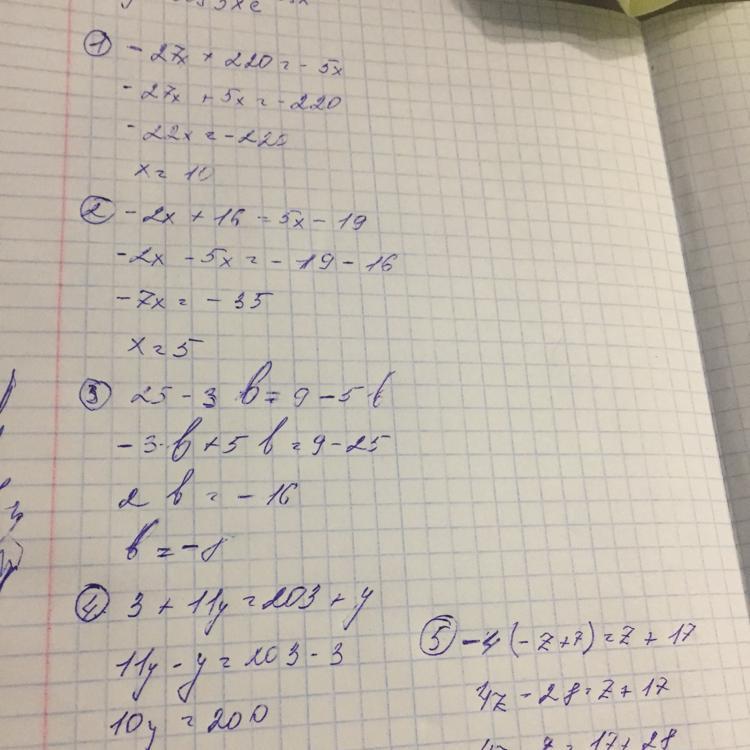 ① - 27x + 220 = - 5x
- 27x + 5x = - 220
- 22x = - 220
x = 10
② - 2x + 16 = 5x - 19
- 2x - 5x = - 19 - 16
- 7x = - 35
x = 5
③ 25 - 3 b = 9 - 5 b
- 3 b + 5 b = 9 - 25
2 b = - 16
b = - 8
④ 3 + 11y = 203 + y
11y - y = 203 - 3
10y = 200
⑤ - 4 (- z + 7) = z + 17
4z - 28 = z + 17
4z - z = 17 + 28